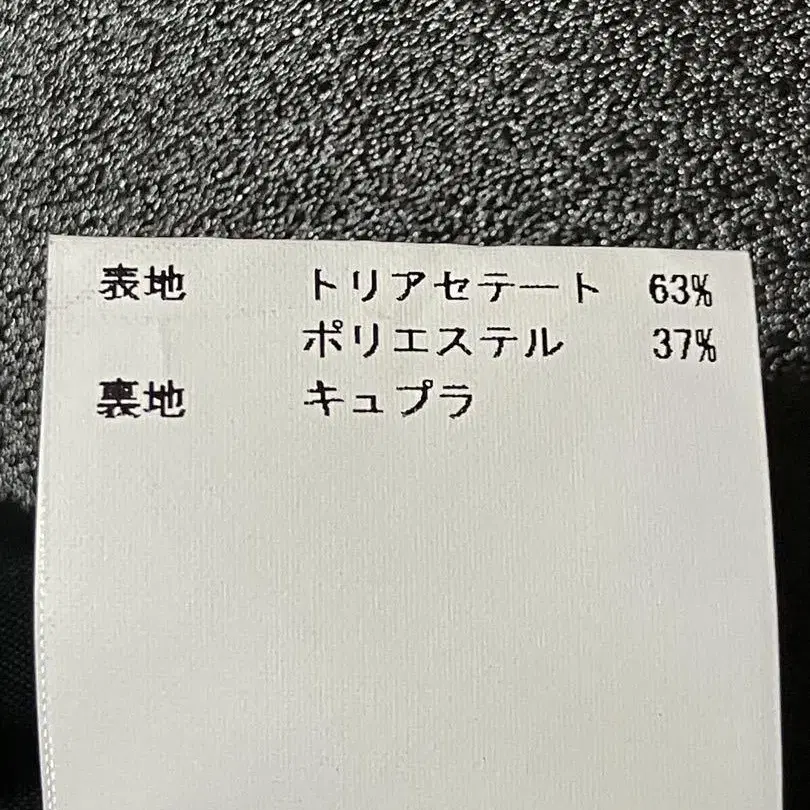 表地 トリアセテート 63%
ポリエステル 37%
裏地 キュプラ